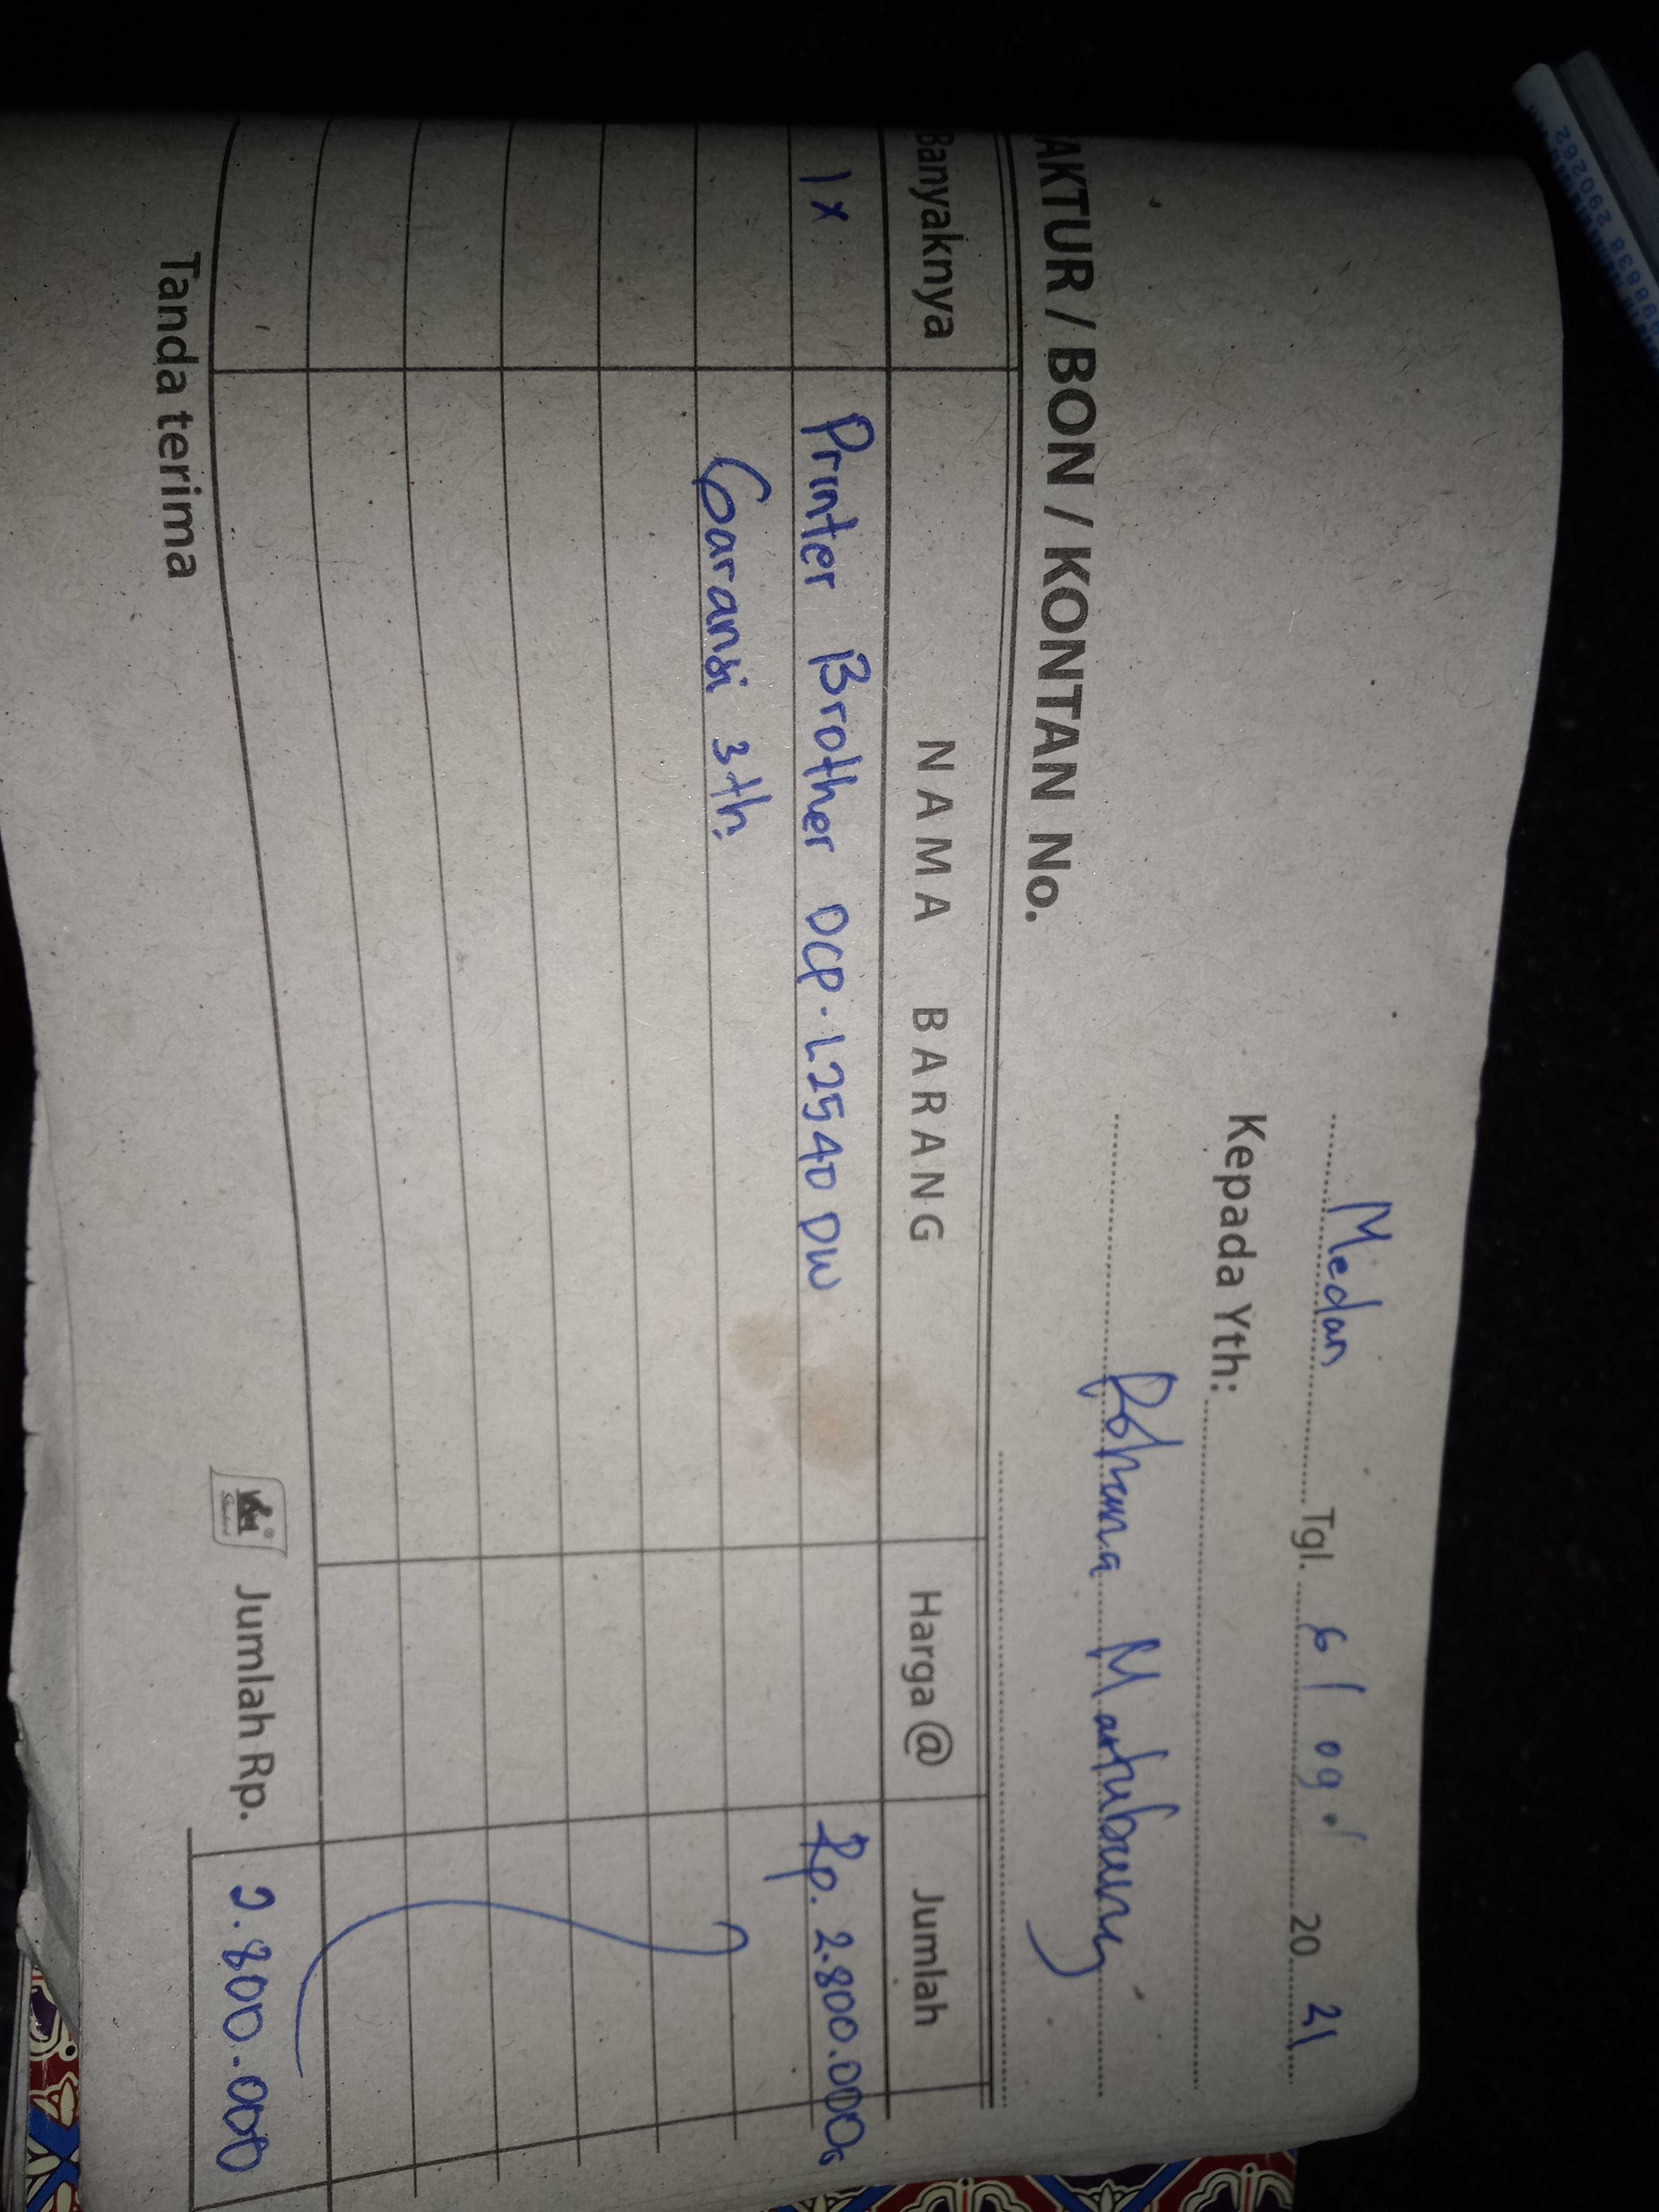 Medan Tgl. 6 / 09 / 20 21
Kepada Yth:
Martubung
AKTUR / BON / KONTAN No.
Banyaknya NAMA BARANG Harga @ Jumlah
1 x Printer Brother DCP-L2540 DW Rp. 2.800.000
Garansi 3 th.
Tanda terima Jumlah Rp. 2.800.000